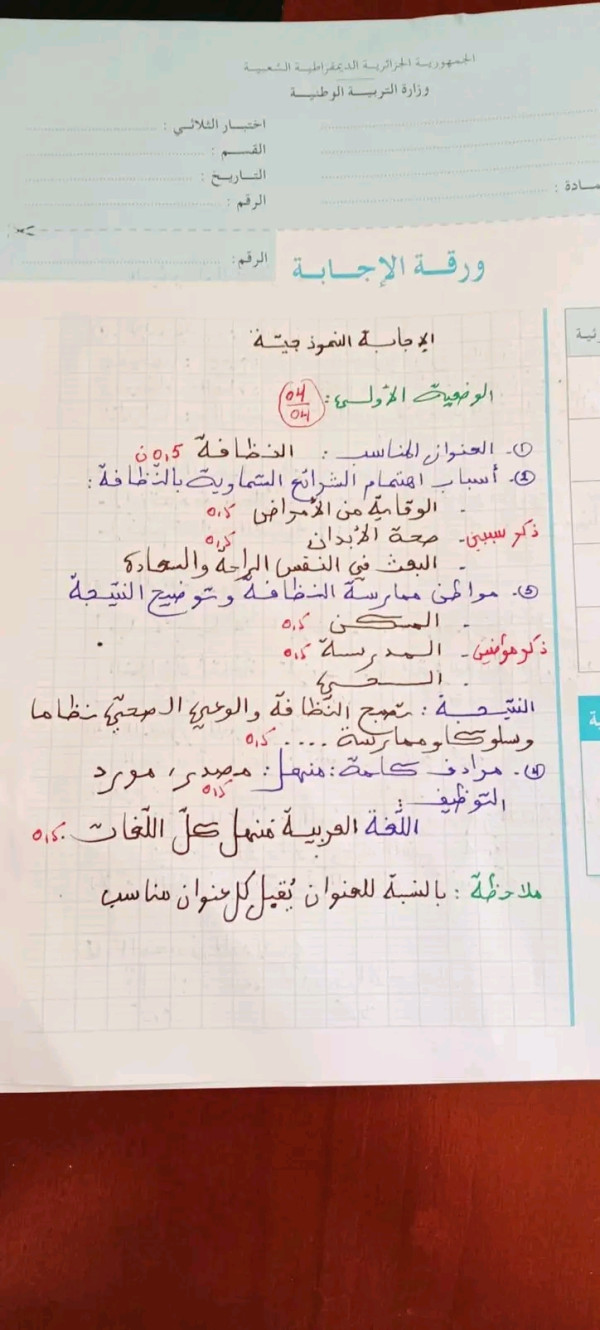 الجمهورية الجزائرية الديمقراطية الشعبية
وزارة التربية الوطنية
اختبار الثلاثي :
القسم :
التاريخ :
الرقم :
ـادة :
الرقم:
ورقة الإجابة
الإجابة النموذجية
الوضعية الأولى: 04/04
①. العنوان المناسب : النظافة 0,5 ن
②. أسباب اهتمام الشرائع السماوية بالنّظافة :
- الوقاية من الأمراض 0,5
ذكر سببين - صحة الأبدان 0,5
- البعث في النفس الراحة والسعادة
③. مواطن ممارسة النظافة وتوضيح النتيجة
- المسكن 0,5
ذكر موطنين - المدرسة 0,5
- الحي
النتيجة : تصبح النظافة والوعي الصحي نظاما
وسلوكا وممارسة .... 0,5
④. مرادف كلمة : منهل : مصدر، مورد 0,5
التوظيف :
اللّغة العربية منهل كلّ اللّغات . 0,5
ملاحظة : بالنسبة للعنوان يُقبل كل عنوان مناسب
ئية
ية